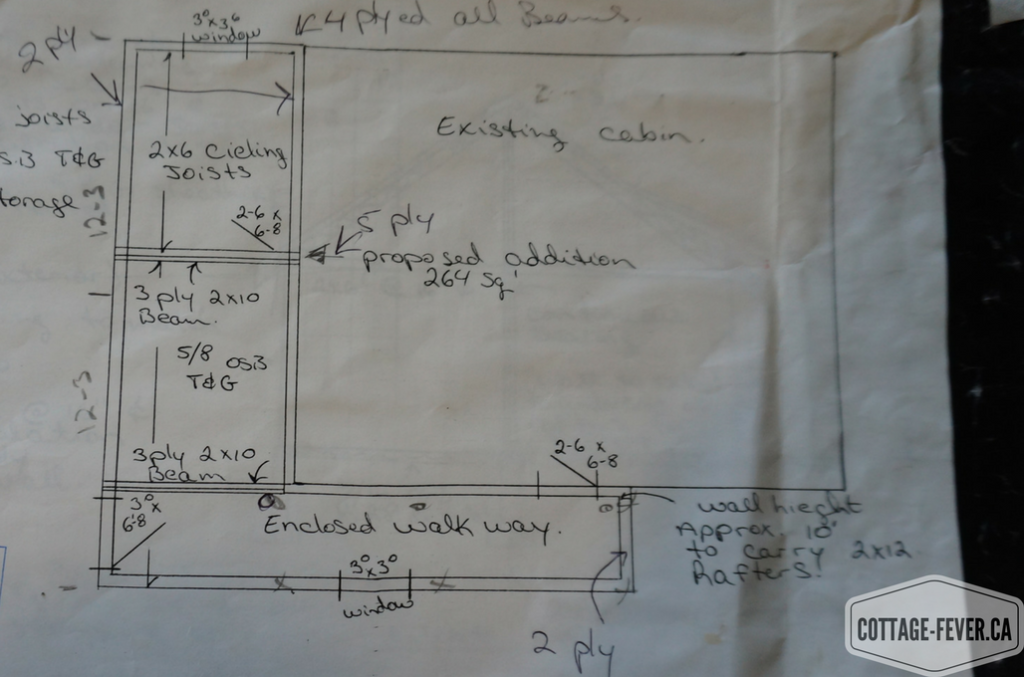 4 plyed all Beams.
2 ply
3⁰ x 3⁶
window
joists
T&G
2x6 Cieling
Joists
12-3
2-6 x
6-8
Existing cabin.
5 ply
proposed addition
264 sq'
3 ply 2x10
Beam.
5/8 OSB
T&G
12-3
3ply 2x10
Beam
2-6 x
6-8
3⁰ x
6'8
Enclosed walk way.
3⁰x3⁰
window
wall hieght
Approx. 10'
to carry 2x12
Rafters!
2 ply
COTTAGE-FEVER.CA